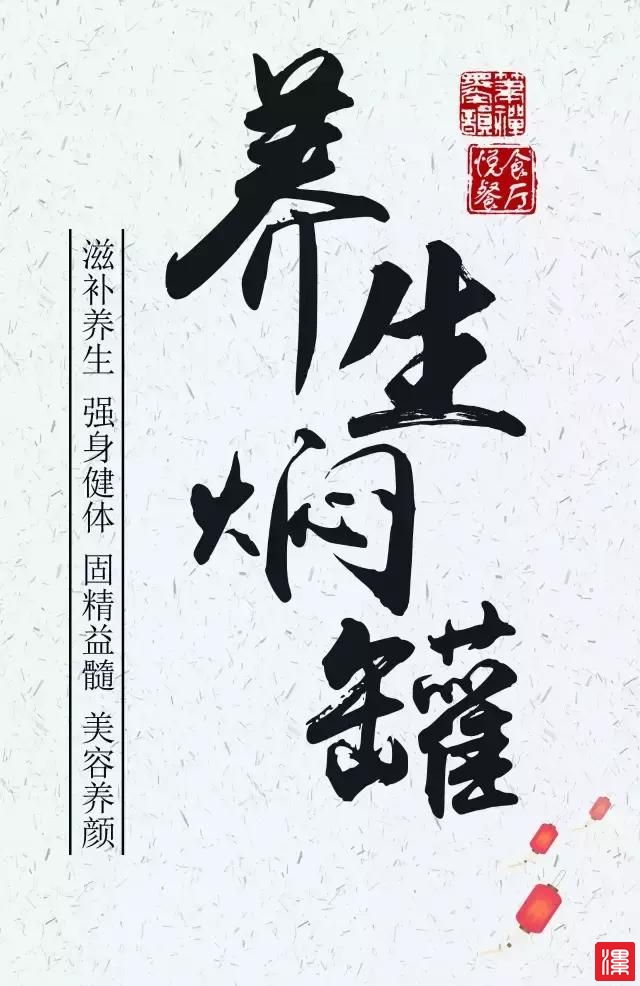 养生焖罐
悦食
餐厅
滋补养生 强身健体 固精益髓 美容养颜
漯